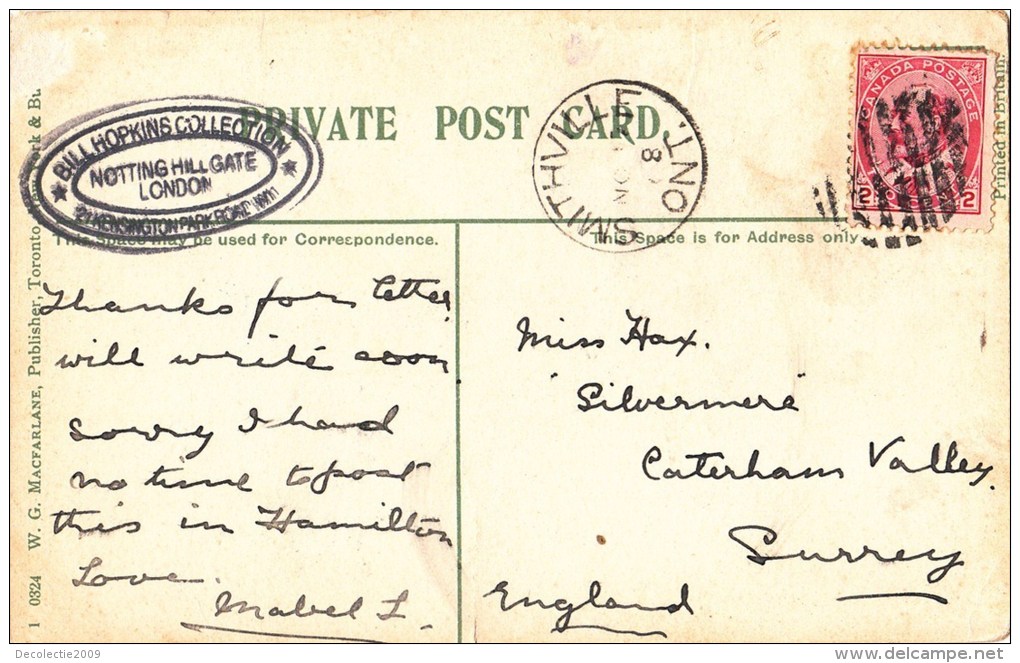 PRIVATE POST CARD.
BILL HOPKINS COLLECTION
NOTTING HILL GATE
LONDON
KENSINGTON PARK ROAD W11
SMITHVILLE ONT.
CANADA POSTAGE
2 2
This Space may be used for Correspondence.
This Space is for Address only
Thanks for letter
will write soon
sorry I had
no time to post
this in Hamilton
Love.
Mabel L.
Miss Hax.
Silvermere
Caterham Valley.
Surrey
England
1 0324 W. G. MACFARLANE, Publisher, Toronto
Printed in Britain.
Decolectie2009
www.delcampe.net